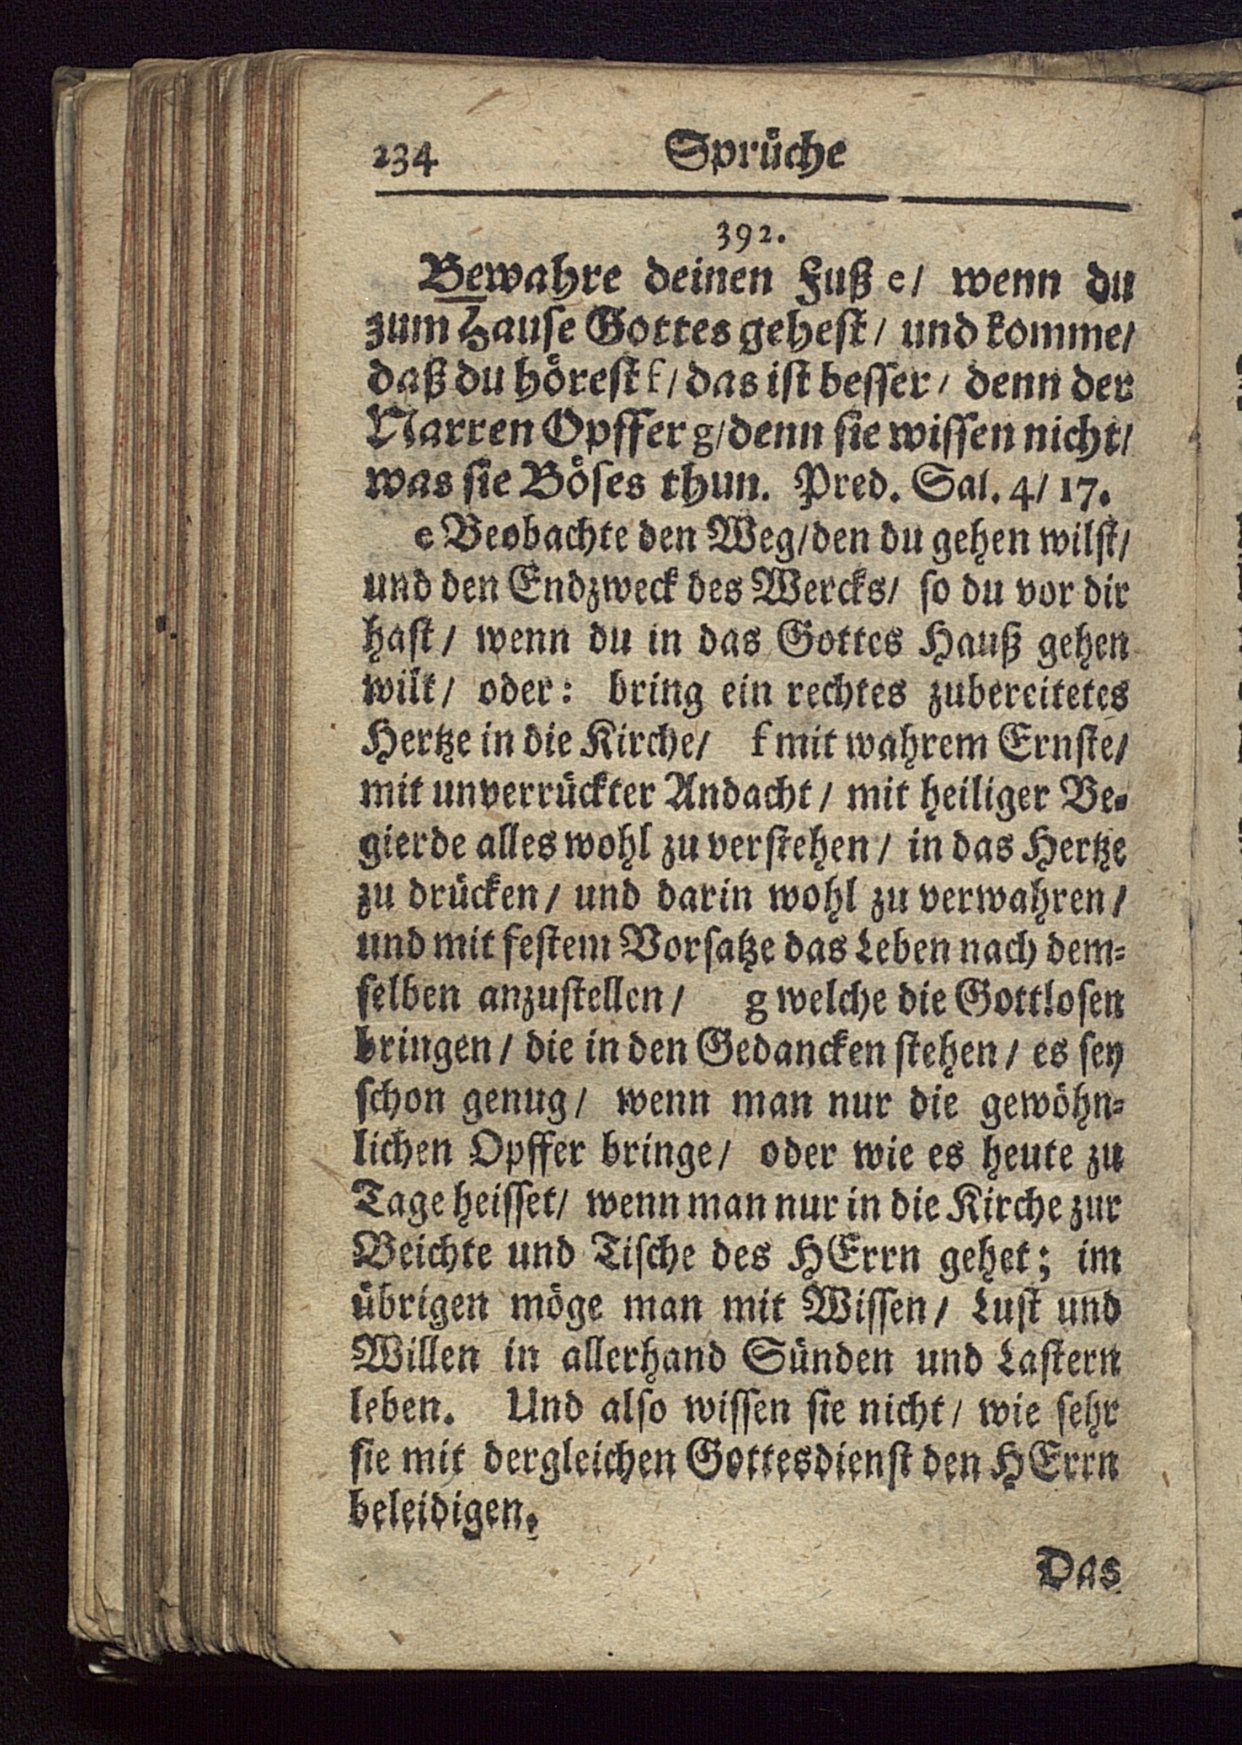 234 Sprüche
392.
Bewahre deinen Fuß e/ wenn du
zum Hause Gottes gehest/ und komme/
daß du hörest f/ das ist besser/ denn der
Narren Opffer g/ denn sie wissen nicht/
was sie Böses thun. Pred. Sal. 4/ 17.
e Beobachte den Weg/ den du gehen wilst/
und den Endzweck des Wercks/ so du vor dir
hast/ wenn du in das Gottes Hauß gehen
wilt/ oder: bring ein rechtes zubereitetes
Hertze in die Kirche/ f mit wahrem Ernste/
mit unverrückter Andacht/ mit heiliger Be-
gierde alles wohl zu verstehen/ in das Hertze
zu drücken/ und darin wohl zu verwahren/
und mit festem Vorsatze das Leben nach dem-
selben anzustellen/ g welche die Gottlosen
bringen/ die in den Gedancken stehen/ es sey
schon genug/ wenn man nur die gewöhn-
lichen Opffer bringe/ oder wie es heute zu
Tage heisset/ wenn man nur in die Kirche zur
Beichte und Tische des HErrn gehet; im
übrigen möge man mit Wissen/ Lust und
Willen in allerhand Sünden und Lastern
leben. Und also wissen sie nicht/ wie sehr
sie mit dergleichen Gottesdienst den HErrn
beleidigen.
Das